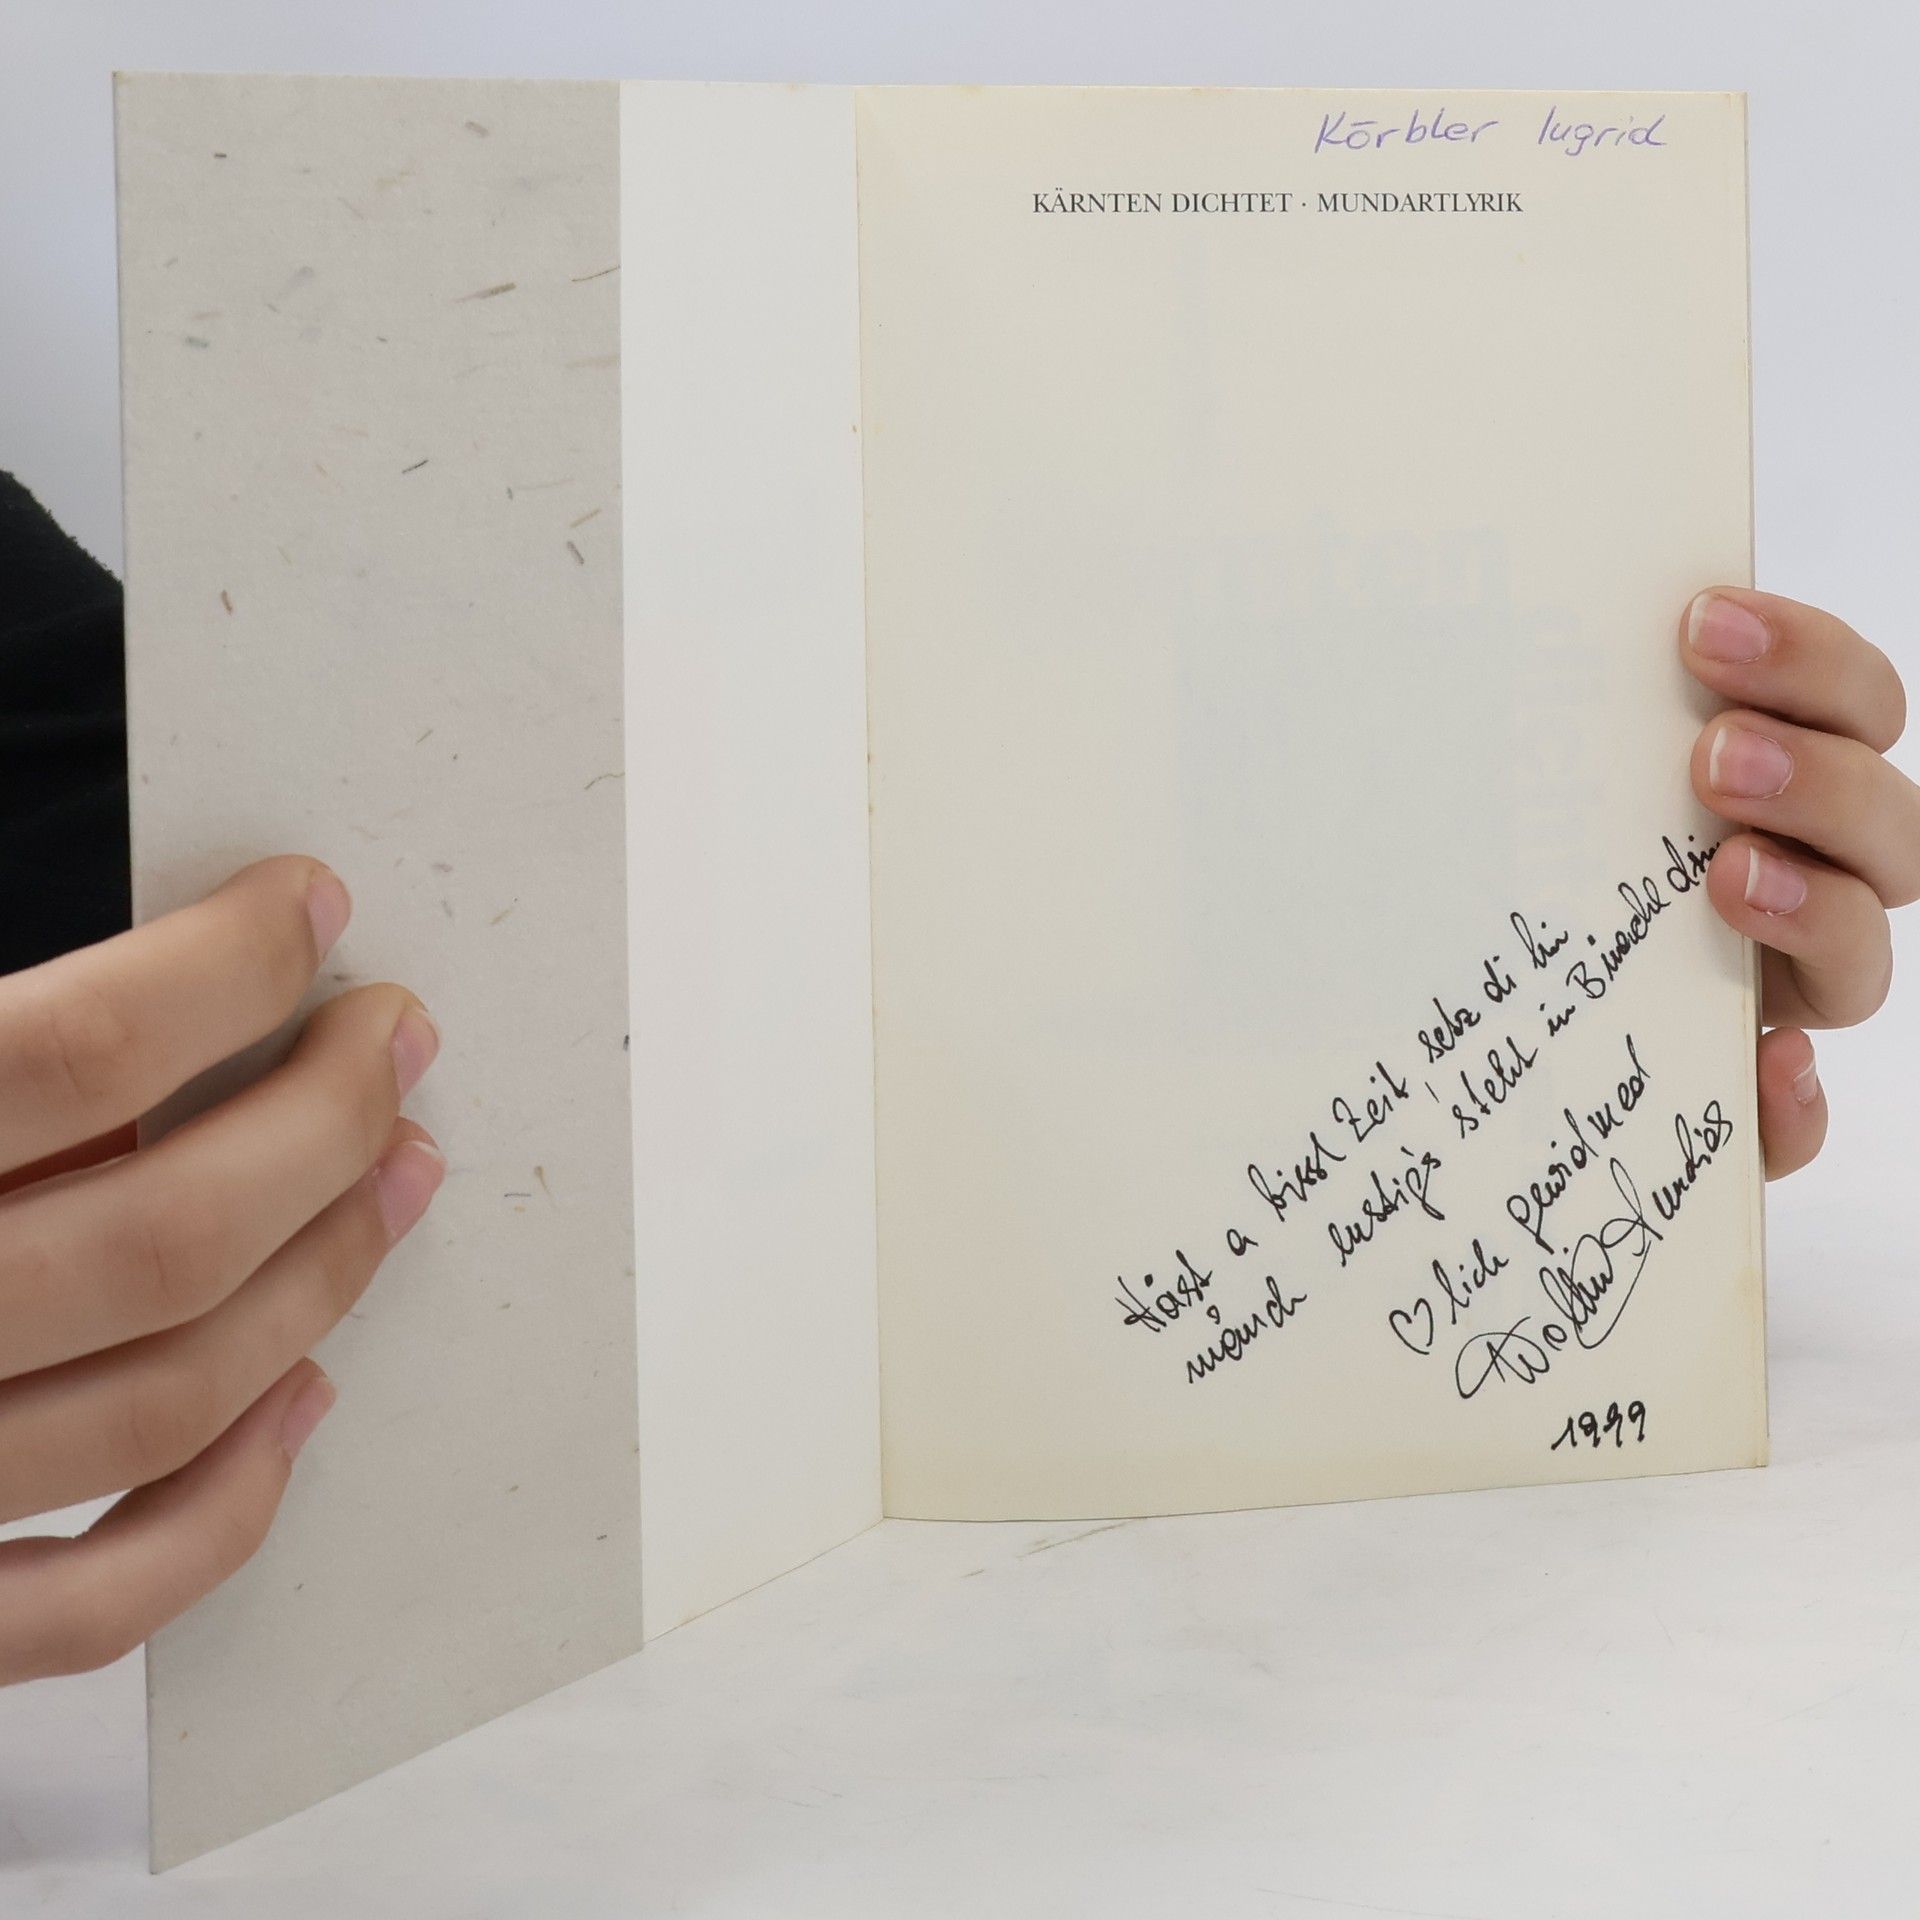 Körbler Ingrid
KÄRNTEN DICHTET · MUNDARTLYRIK
Håst a bissl Zeit, setz di hin
månch lustig's steht in Büachl drin
♡lich gewidmed
1999